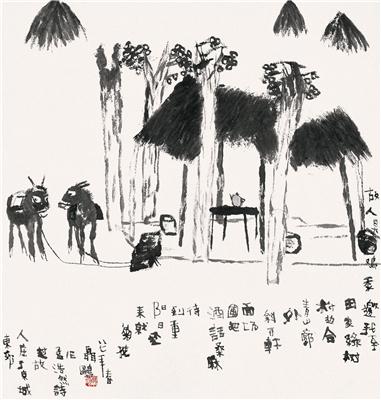 故人具鸡黍邀我至
田家綠树
村边合
青山郭
外
斜开轩
面场
圃把
酒話桑麻
待
到重
阳日还
来就
菊花
年春
孟浩然詩
過故
人庄于京城
東郊